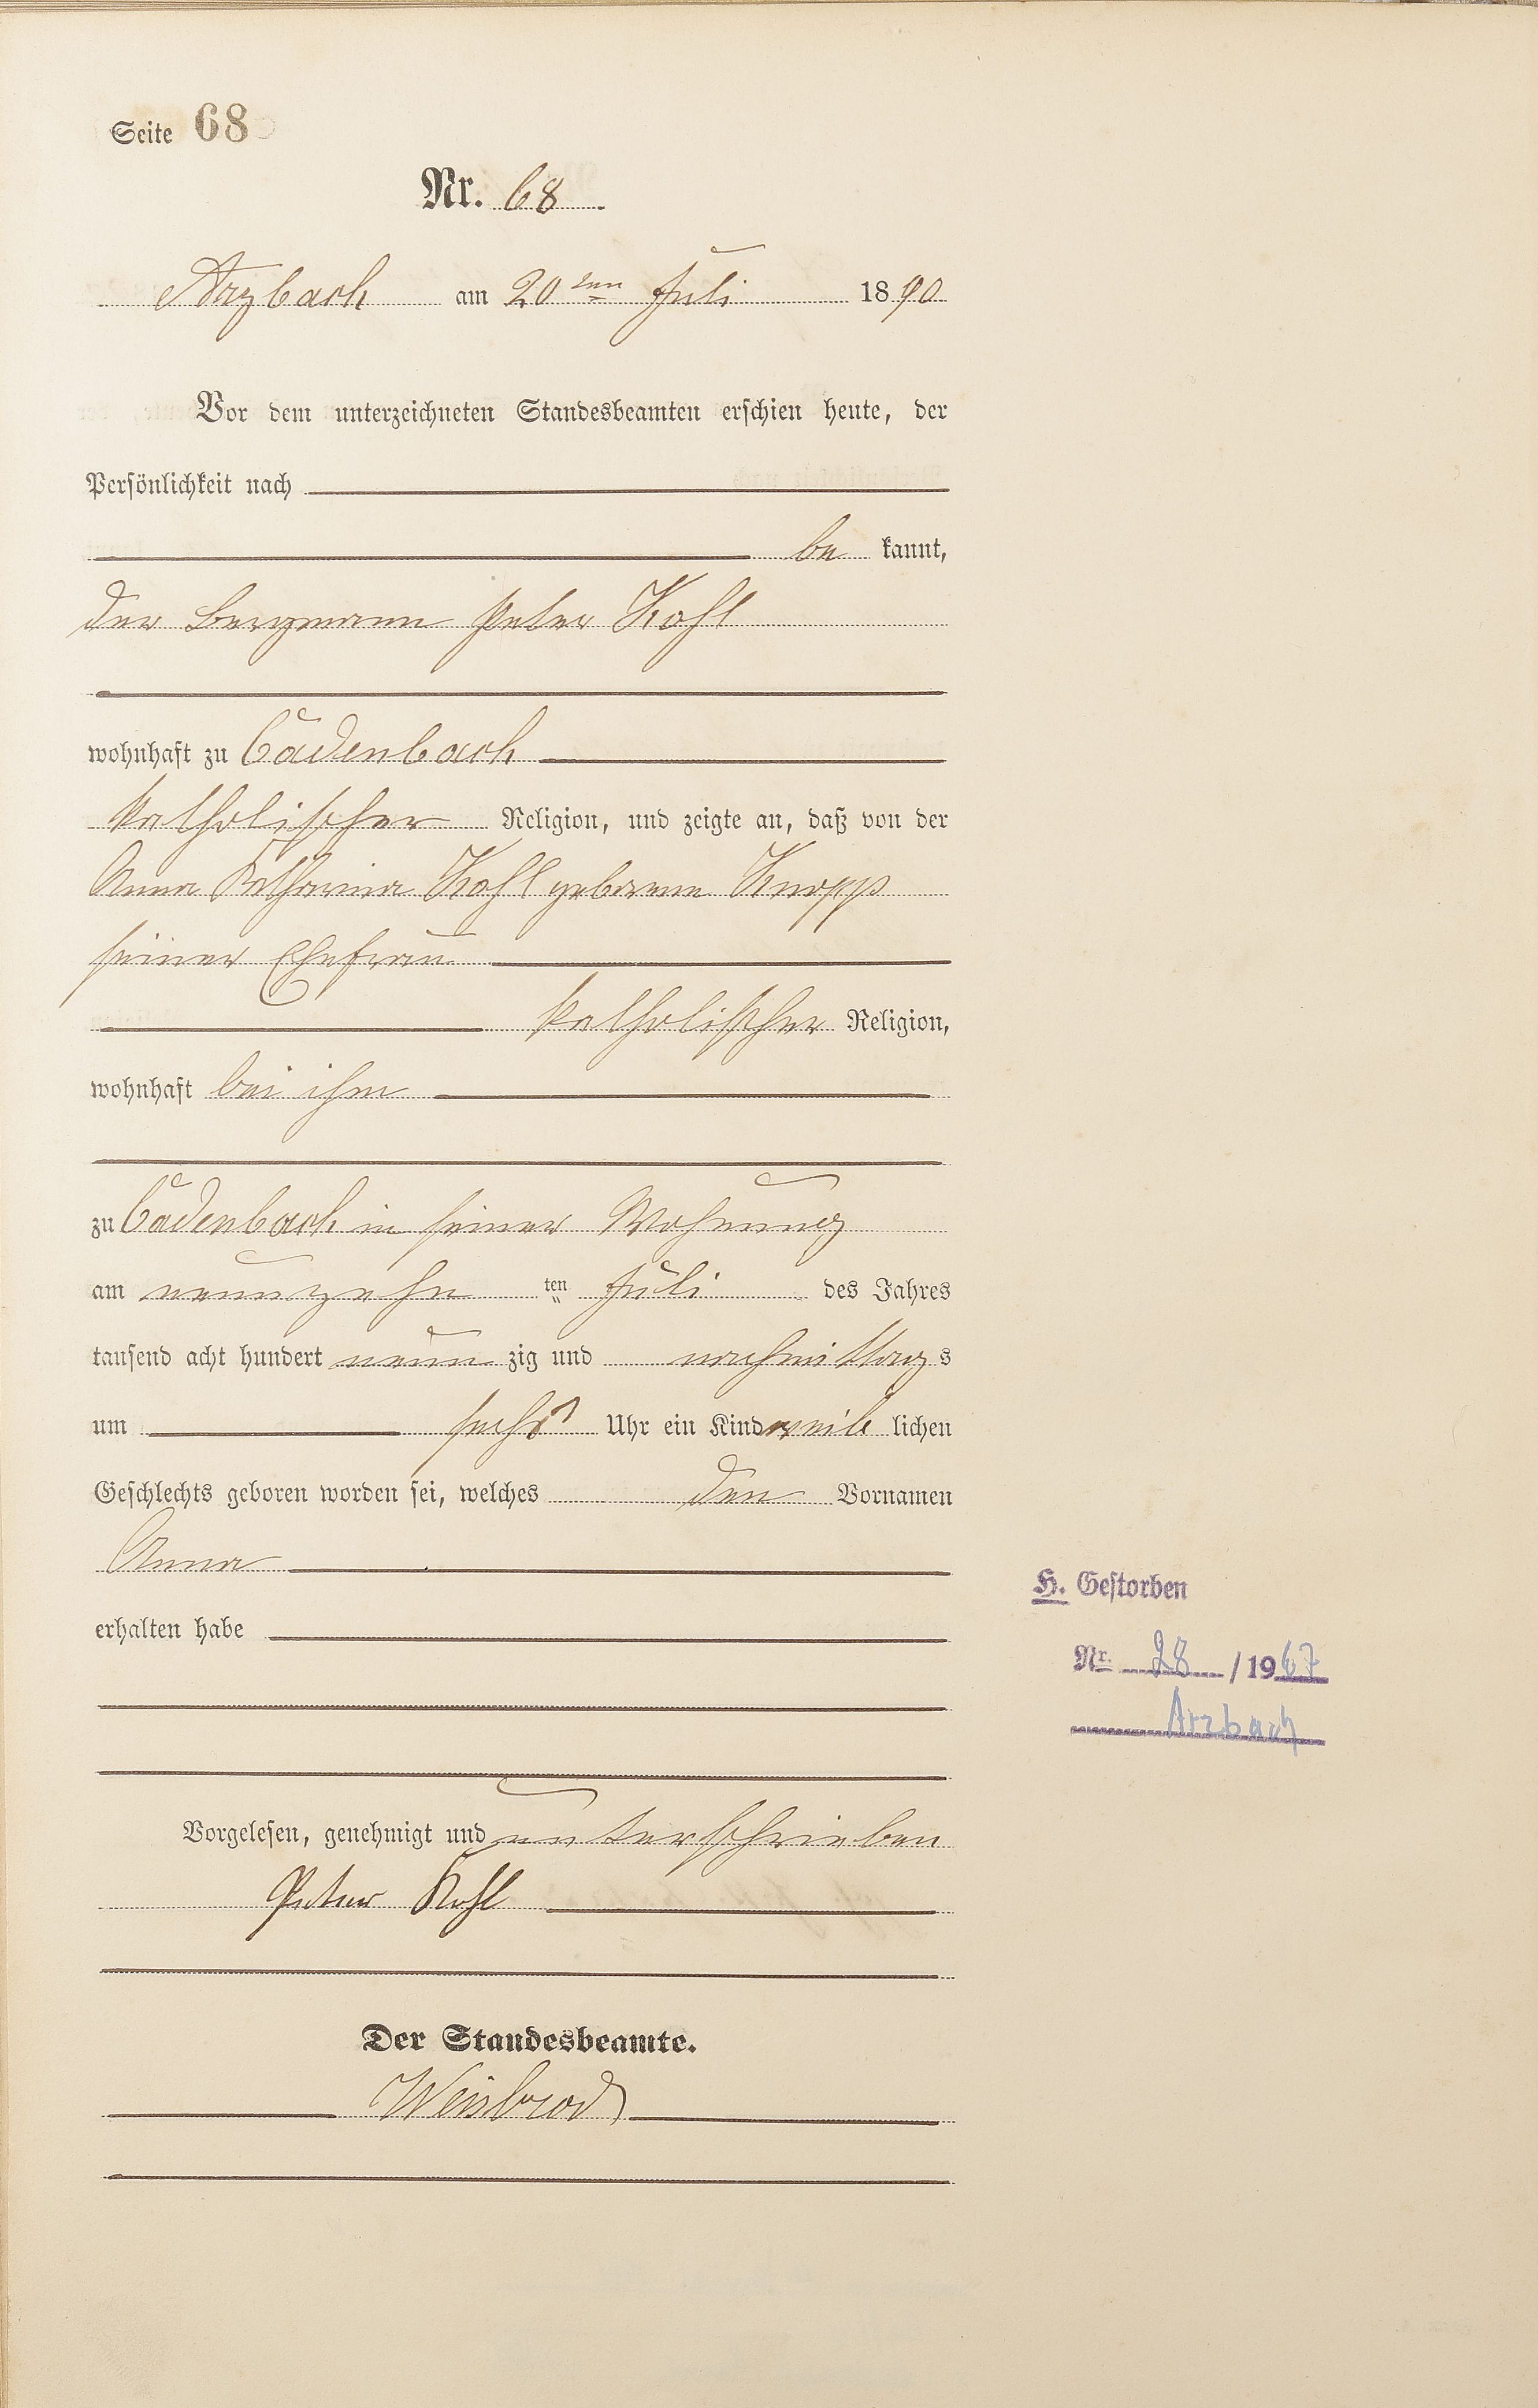 Seite 68
Nr. 68
Arzbach am 20ten Juli 1890
Vor dem unterzeichneten Standesbeamten erschien heute, der
Persönlichkeit nach
be kannt,
der Bergmann Peter Kohl
wohnhaft zu Cadenbach
katholischer Religion, und zeigte an, daß von der
Anna Katharina Kohl geborene Knopp
seiner Ehefrau
katholischer Religion,
wohnhaft bei ihm
zu Cadenbach in seiner Wohnung
am neunzehn ten Juli des Jahres
tausend acht hundert neun zig und nachmittags
um sechs Uhr ein Kind weib lichen
Geschlechts geboren worden sei, welches den Vornamen
Anna
erhalten habe
H. Gestorben
Nr. 28 / 1967
Arzbach
Vorgelesen, genehmigt und unterschrieben
Peter Kohl
Der Standesbeamte.
Weisbrod